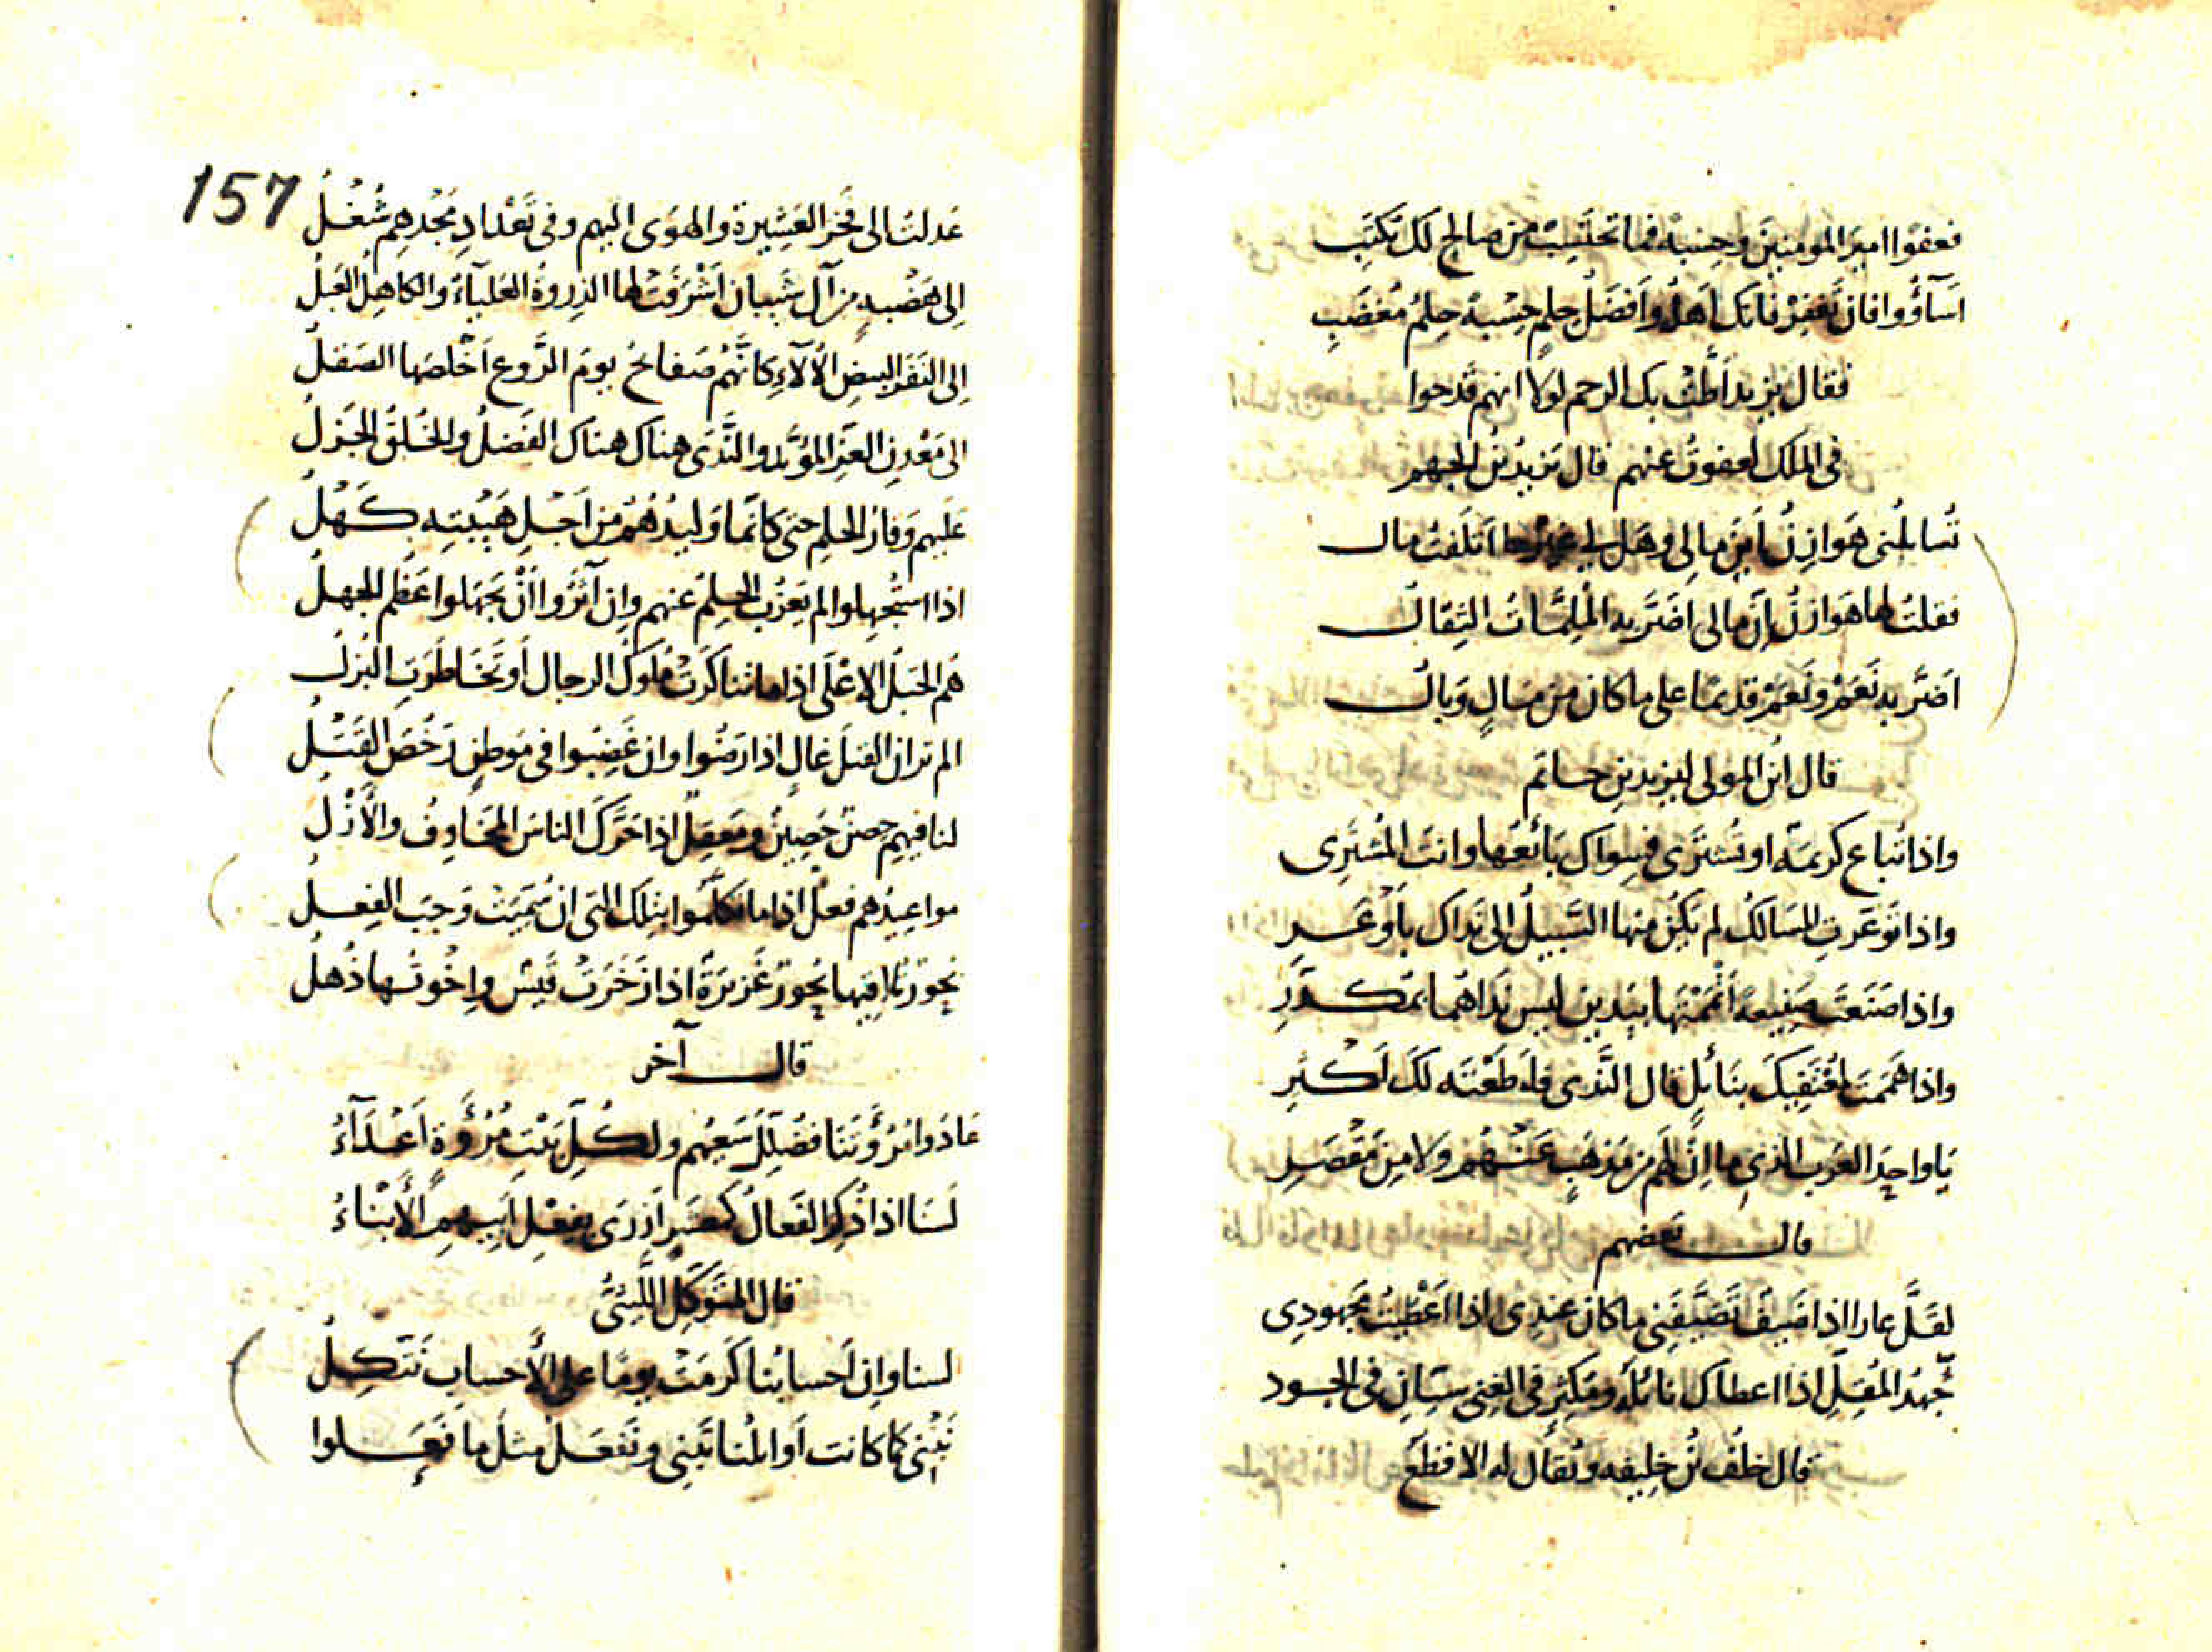 فعفوا امير المومنين وحسبة فما تحتسب من صالح لك تكتب
اسآؤوا فان تغفر فانك اهلُه وافضل حلم حسبة حلم مغضب
فقال يزيد اطت بك الرحم لولا انهم قدحوا
في الملك لعفوت عنهم قال يزيد بن الجهم
تُسائلني هوازن اين مالي وهل لي غير ما اتلفت مال
فقلت لها هوازن إن مالي اضر به الملمات الثقال
اضر به نعم ونعم قديما على ما كان من مال وبال
قال ابن المولى ليزيد بن حاتم
واذا تباع كريمة او تشترى فسواك بائعها وانت المشتري
واذا توعرت المسالك لم يكن منها السبيل الى نداك باوعر
واذا صنعت صنيعة اتممتها بيدين ليس نداهما بمكدر
واذا هممت لمعتفيك بنائل قال الندى فاطعته لك اكثر
يا واحد العرب الذي ما إن لهم من مذهب عنهم ولا من مقصر
قال بعضهم
لقل عارا اذا ضيف تضيفني ما كان عندي اذا اعطيت مجهودي
جهد المقل اذا اعطاك نائله ومكثر في الغنى سيان في الجود
قال خلف بن خليفه ويقال له الاقطع
157
عدلت الى فخر العشيرة والهوى اليهم وفي تعداد مجدهم شغل
الى هضبة من آل شيبان اشرفت لها الذروة العلياء والكاهل العبل
إلى النفر البيض الألآء كانهم صفائح يوم الروع اخلصها الصقل
الى معدن العز المؤيد والندى هناك هناك الفضل والخلق الجزل
عليهم وقار الحلم حتى كانما وليدهم من اجل هيبته كهل
اذا استجهلوا لم يعزب الحلم عنهم وإن آثروا أن يجهلوا عظم الجهل
هم الجبل الاعلى اذا ما تناكرت ملوك الرجال او تخاطرت البزل
الم تر ان القتل غال اذا رضوا وان غضبوا في موطن رخص القتل
لنا فيهم حصن حصين ومعقل اذا حرك الناس المخاوف والأزل
مواعيدهم فعل اذا ما تكلموا بتلك التي ان سميت وجب الفعل
بحور تلاقيها بحور غزيرة اذا زخرت قيس وإخوتها ذهل
قال آخر
عادوا مروءتنا فضلل سعيهم ولكل بيت مروءة اعدآء
لسنا اذا ذكر الفعال كمعشر ازرى بفعل ابيهم الأبناء
قال المتوكل الليثي
لسنا وإن احسابنا كرمت يوما على الأحساب نتكل
نبني كما كانت اوائلنا تبني ونفعل مثل ما فعلوا